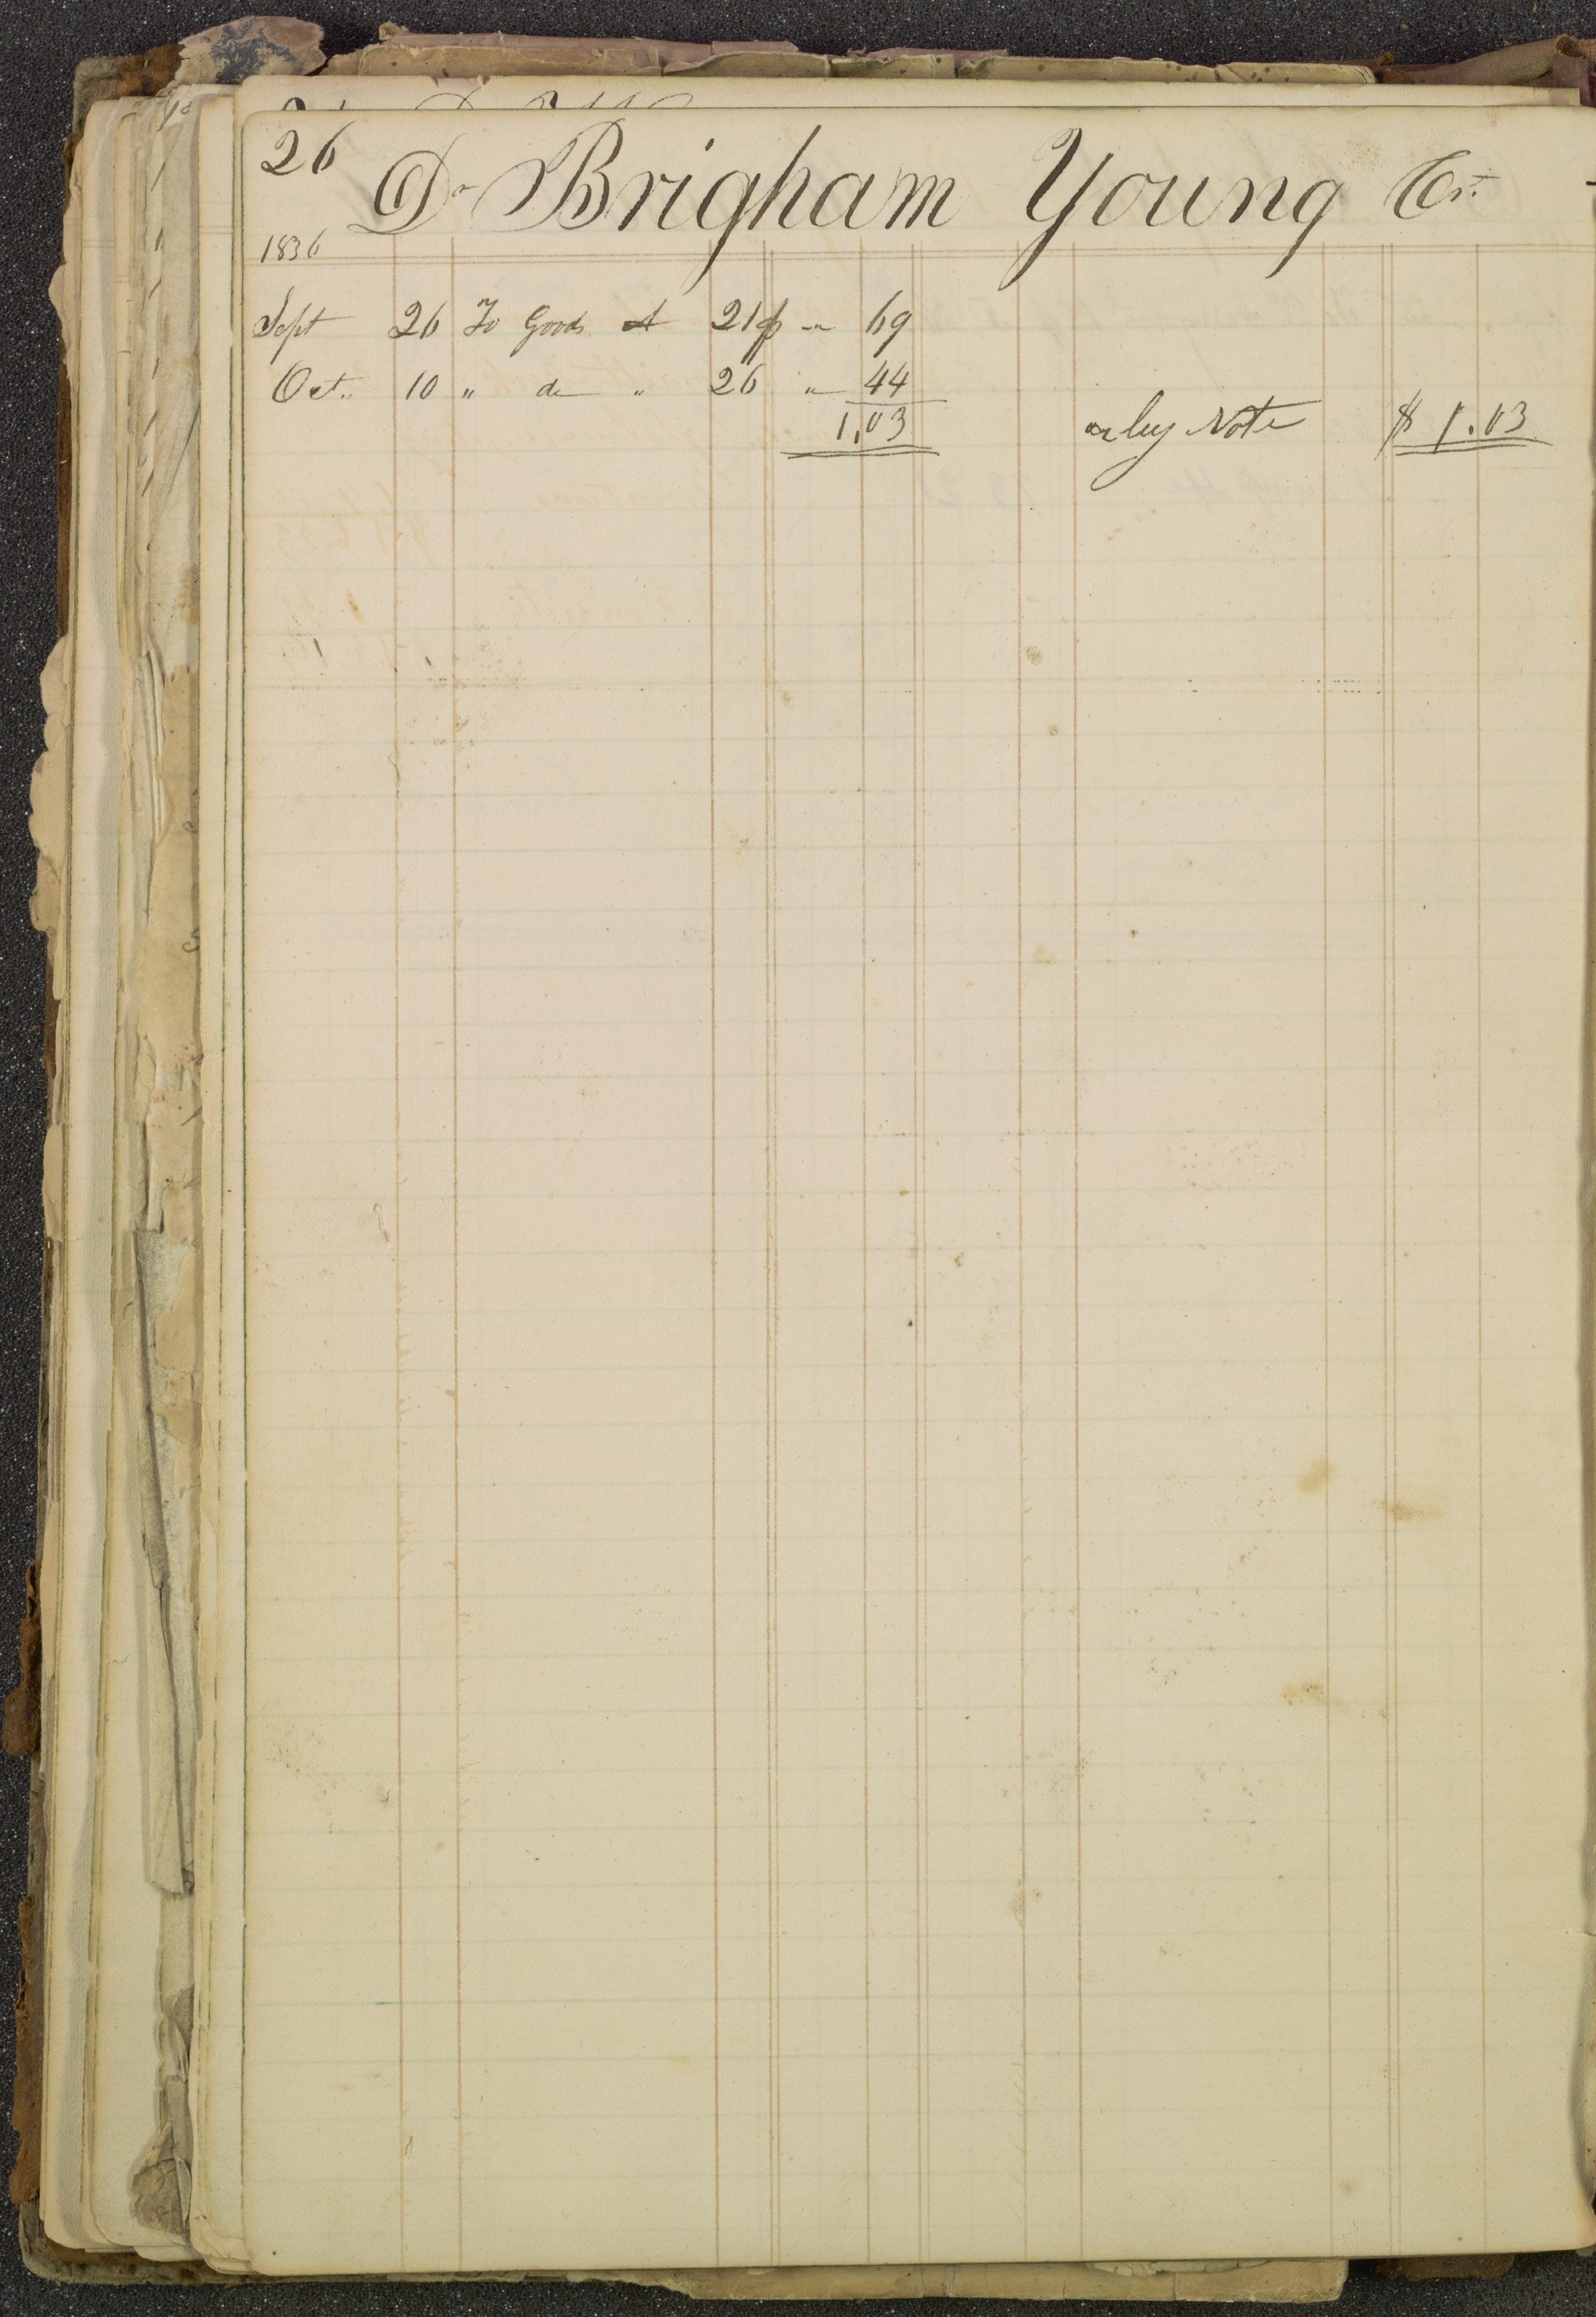 26 Dr Brigham Young Cr.
1836
Sept 26 To Goods A 21 " 69
Oct. 10 " do " 26 " 44
1,03 by Note $1.03